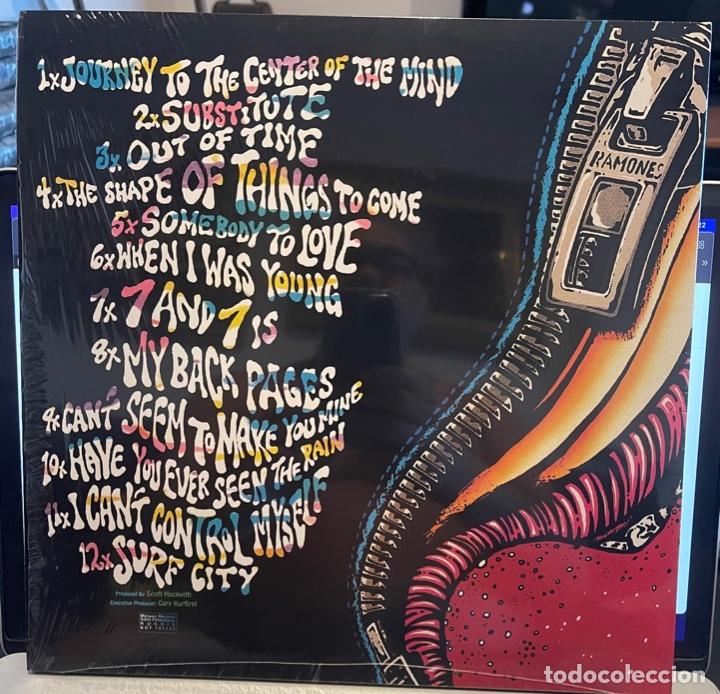 1x JOURNEY TO THE CENTER OF THE MIND
2x SUBSTITUTE
3x. OUT OF TIME
4x THE SHAPE OF THINGS TO COME
5x SOMEBODY TO LOVE
6x WHEN I WAS YOUNG
7x 7 AND 7 IS
8x MY BACK PAGES
9x CAN'T SEEM TO MAKE YOU MINE
10x HAVE YOU EVER SEEN THE RAIN
11x I CAN'T CONTROL MYSELF
12x SURF CITY
RAMONES
Produced By Scott Hackwith
Executive Producer: Gary Kurfirst
RUSSIA
todocoleccion
todocoleccion.net